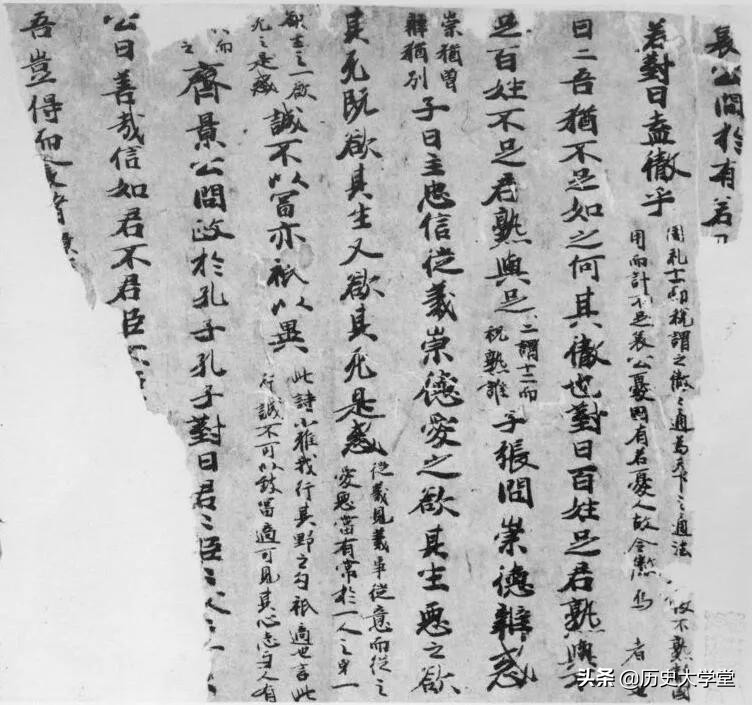 哀公問於有若
若對曰盍徹乎
周礼十一而税謂之徹〻通為天下之通法
用而計不足哀公憂國有若憂人故令徹焉
曰二吾猶不足如之何其徹也對曰百姓足君熟與不
足百姓不足君熟與足
二謂十二而
税熟誰
子張問崇德辯惑
崇猶曽
辯猶別
子曰主忠信從義崇德愛之欲其生惡之欲
其死既欲其生又欲其死是惑
從義見義事從意而從之
愛恩當有常於一人之身一
欲生之一欲
死之是惑
誠不以冨亦祇以異
此詩小雅我行其野之句祇適也言此
行誠不可以致冨適可見其心志与人有
以而
之
齊景公問政於孔子孔子對曰君〻臣〻父〻
公曰善哉信如君不君臣不
吾豈得而食諸
头条 @历史大学堂